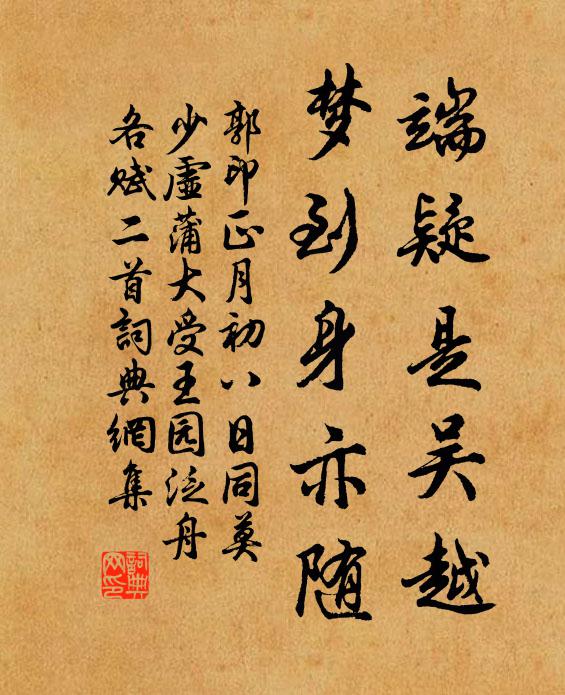 端疑是吴越
梦到身亦随
郭印正月初八日同莫
少虚蒲大受王园泛舟
各赋二首詞典網集
詞典网印